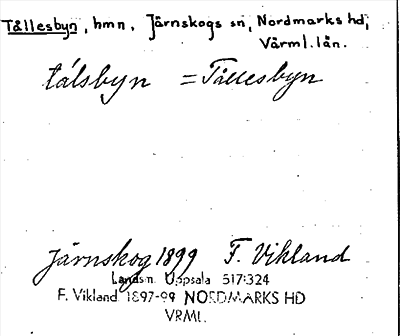 Tållesbyn, hmn, Järnskogs sn, Nordmarks hd,
Värml. län.
tálsbyn = Tållesbyn
Järnskog 1899 F. Vikland
Landsm. Uppsala 517:324
F. Vikland 1897-99 NORDMARKS HD
VRML.